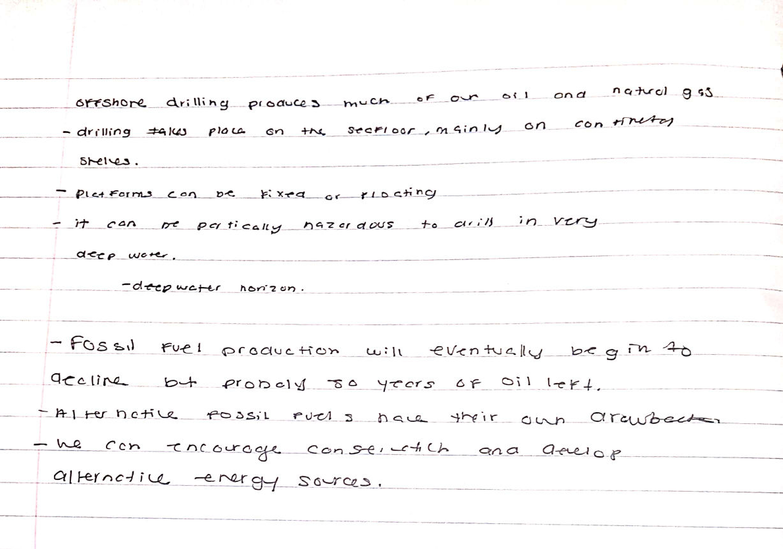 offshore drilling produces much of our oil and natural gas
- drilling takes place on the seafloor, mainly on continetal
shelves.
- Platforms can be fixed or floating
- it can be partically hazardous to drill in very
deep water.
- deepwater horizon.
- Fossil fuel production will eventually begin to
decline but probely 50 years of oil left.
- Alternative fossil fuels have their own drawbacks
- we can encourage conservation and develop
alternative energy sources.